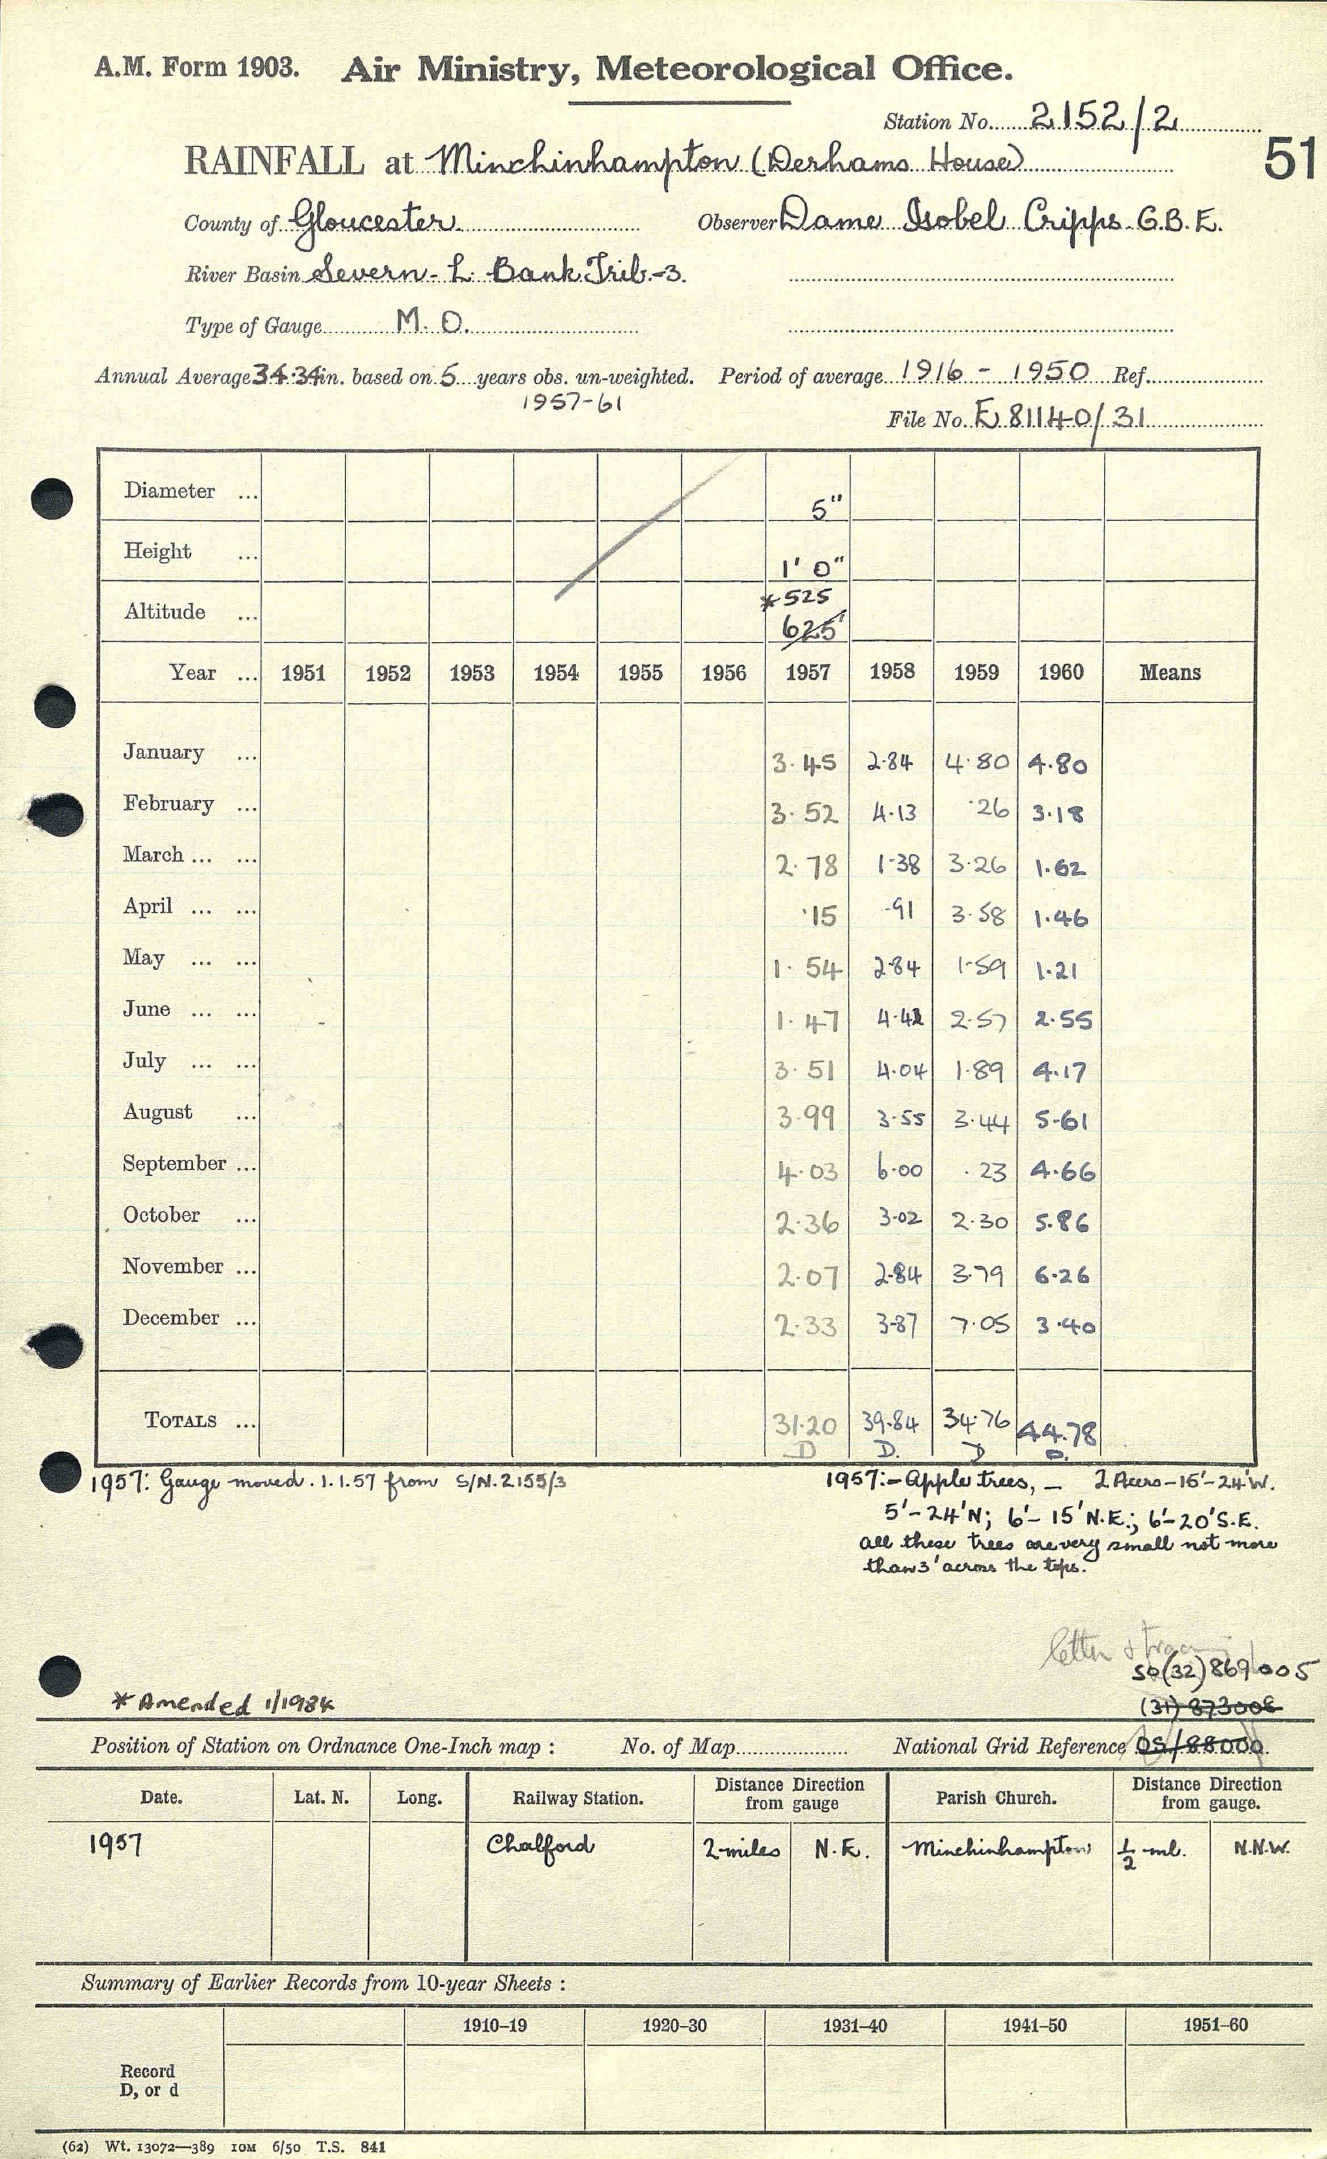 A.M. Form 1903. Air Ministry, Meteorological Office.
Station No. 2152/2
RAINFALL at Minchinhampton (Derhams House)
51
County of Gloucester. Observer Dame Isobel Cripps. G.B.E.
River Basin Severn - L. Bank Trib.-3.
Type of Gauge M. O.
Annual Average 34.34 in. based on 5 years obs. un-weighted. Period of average 1916 - 1950 Ref.
1957-61
File No. E 81140/31
Diameter ... 5"
Height ... 1' 0"
*525
Altitude ... 625'
Year ... 1951 1952 1953 1954 1955 1956 1957 1958 1959 1960 Means
January ... 3.45 2.84 4.80 4.80
February ... 3.52 4.13 .26 3.18
March ... ... 2.78 1.38 3.26 1.62
April ... ... .15 .91 3.58 1.46
May ... ... 1.54 2.84 1.59 1.21
June ... ... 1.47 4.42 2.57 2.55
July ... ... 3.51 4.04 1.89 4.17
August ... 3.99 3.55 3.44 5.61
September ... 4.03 6.00 .23 4.66
October ... 2.36 3.02 2.30 5.86
November ... 2.07 2.84 3.79 6.26
December ... 2.33 3.87 7.05 3.40
TOTALS ... 31.20 39.84 34.76 44.78
D D. D D.
1957: Gauge moved. 1.1.57 from S/N. 2155/3
1957:- Apple trees, - 2 Acers - 15'-24'W.
5'-24'N; 6'-15'N.E.; 6'-20'S.E.
all these trees are very small not more
than 3' across the tops.
letter &
SO(32)869005
*Amended 1/1984
(31) 873006
Position of Station on Ordnance One-Inch map : No. of Map National Grid Reference OS/88000.
Date. Lat. N. Long. Railway Station. Distance from gauge Direction Parish Church. Distance from gauge. Direction
1957 Chalford 2 miles N.E. Minchinhampton ½ ml. N.N.W.
Summary of Earlier Records from 10-year Sheets :
1910-19 1920-30 1931-40 1941-50 1951-60
Record
D, or d
(62) Wt. 13072—389 10M 6/50 T.S. 841